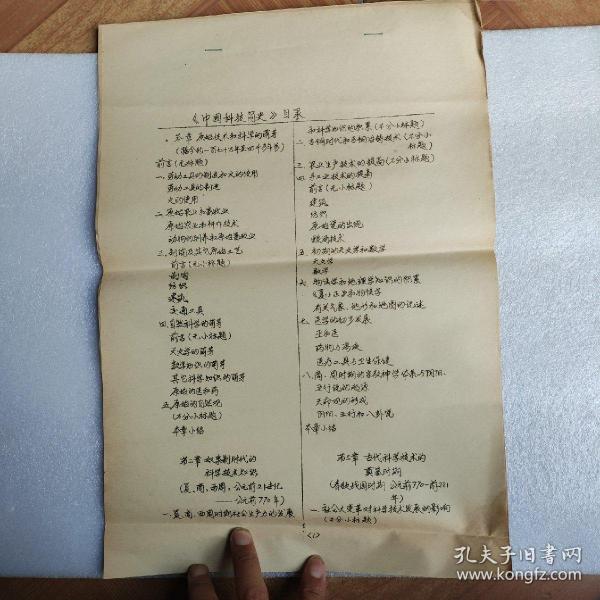 《中国科技简史》目录
第一章 原始技术和科学的萌芽
(距今约一百七十万年至四千多年前)
前言(无标题)
一、劳动工具的制造和火的使用
劳动工具的制造
火的使用
二、原始农业和畜牧业
原始农业和耕作技术
动物的驯养和原始畜牧业
三、制陶及其它原始工艺
前言(无小标题)
制陶
纺织
建筑
交通工具
四、自然科学的萌芽
前言(无小标题)
天文学的萌芽
数学知识的萌芽
其它科学知识的萌芽
原始的医和药
五、原始的自然观
(不分小标题)
本章小结
第二章 奴隶制时代的
科学技术知识
(夏、商、西周,公元前21世纪
——公元前770年)
一、夏、商、西周时期社会生产力的发展
和科学知识的积累(不分小标题)
二、青铜时代和青铜冶铸技术(不分小
标题)
三、农业生产技术的提高(不分小标题)
四、手工业技术的提高
前言(无小标题)
建筑
纺织
原始瓷的出现
酿酒技术
五、初期的天文学和数学
天文学
数学
六、物候学和地理学知识的积累
《夏小正》和物候学
有关气象、地形和地图的记述
七、医学的初步发展
巫和医
药物与汤液
医疗工具与卫生保健
八、商、周时期的宗教神学体系与阴阳、
五行说的起源
天命观的形成
阴阳、五行和八卦说
本章小结
第三章 古代科学技术的
奠基时期
(春秋战国时期 公元前770—前221
年)
一、社会大变革对科学技术发展的影响
(不分小标题)
<1>
孔夫子旧书网
www.kongfz.com